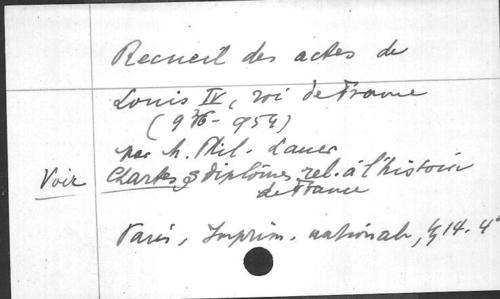 Recueil des actes de
Louis IV, roi de France
(936-954)
par M. Phil. Lauer
Voir Chartes & diplômes rel. à l'histoire
de France
Paris, Imprim. nationale, 1914. 4°